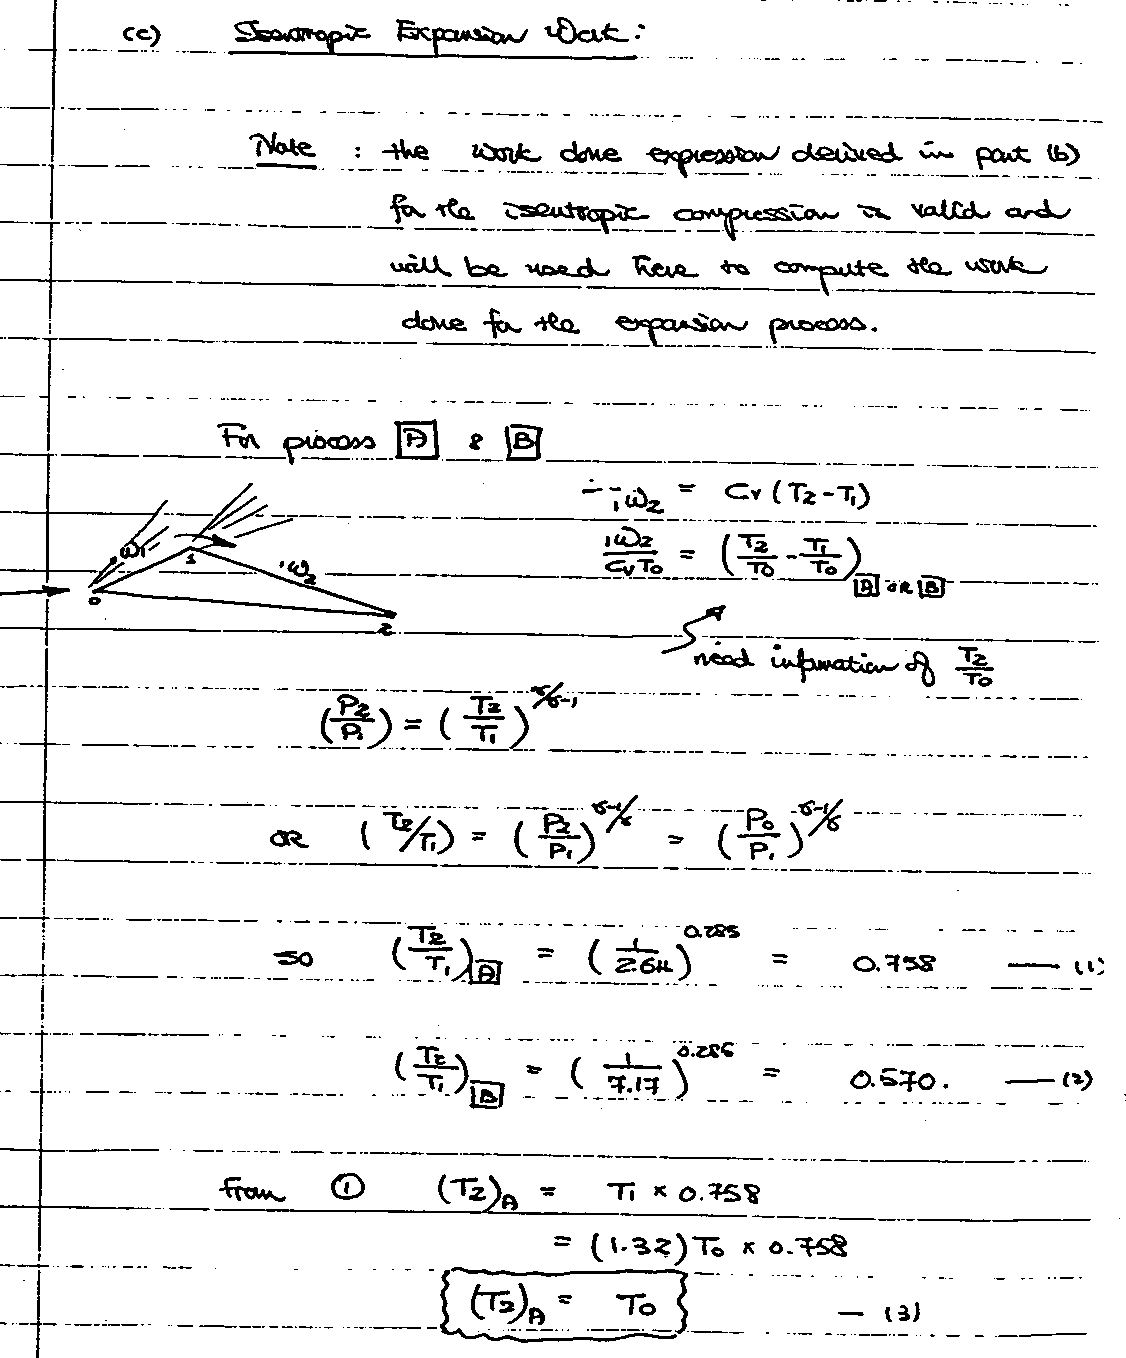 (c) Isentropic Expansion Work:
Note : the work done expression derived in part (b)
for the isentropic compression is valid and
will be used here to compute the work
done for the expansion process.
For process [A] & [B]
∴ - ₁ω₂ = Cv (T2 - T1)
₁ω₂/CvT0 = (T2/T0 - T1/T0) [A] OR [B]
₀ω₁
₁ω₂
0
1
2
need information of T2/T0
(P2/P1) = (T2/T1)^γ/γ-1
OR (T2/T1) = (P2/P1)^γ-1/γ = (P0/P1)^γ-1/γ
so (T2/T1)[A] = (1/2.64)^0.285 = 0.758 — (1)
(T2/T1)[B] = (1/7.17)^0.286 = 0.570. — (2)
from ① (T2)A = T1 × 0.758
= (1.32) T0 × 0.758
(T2)A = T0 — (3)